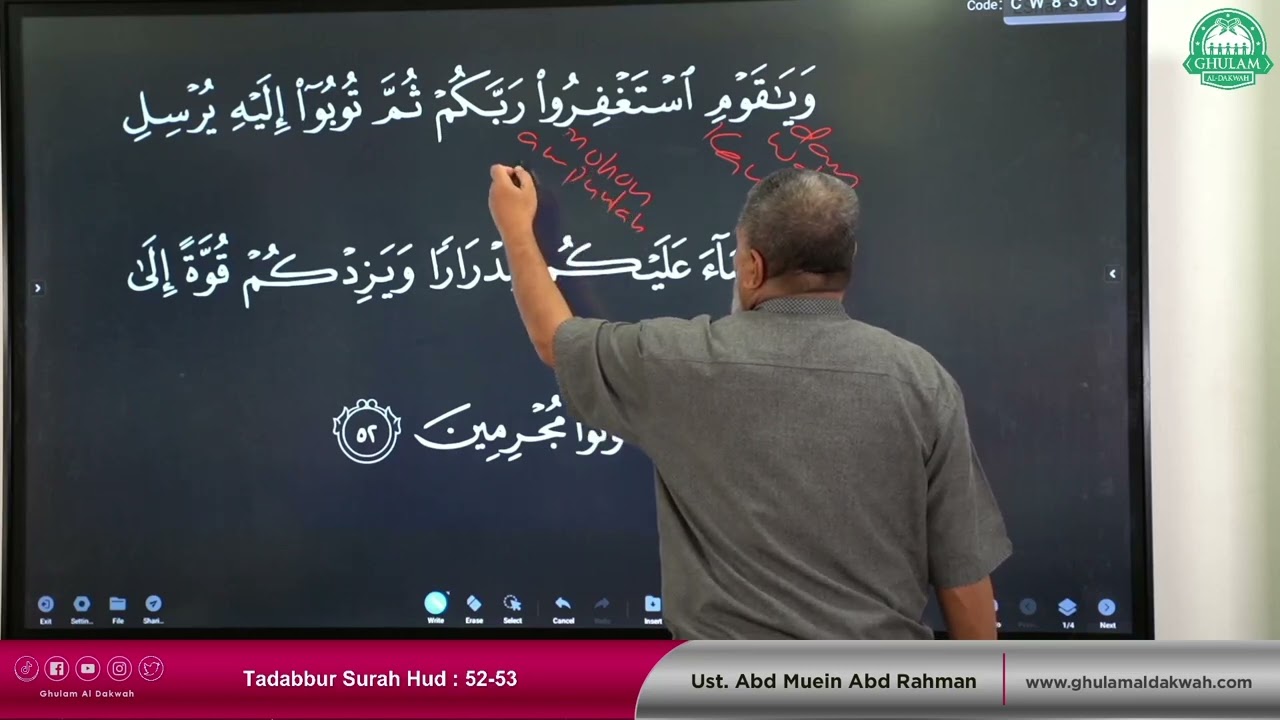 Code: C W 8 3 G C
GHULAM
AL-DAKWAH
وَيَٰقَوْمِ ٱسْتَغْفِرُوا۟ رَبَّكُمْ ثُمَّ تُوبُوٓا۟ إِلَيْهِ يُرْسِلِ
dan
mohon
ampunlah
عَلَيْكُم وَيَزِدْكُمْ قُوَّةً إِلَىٰ
مُجْرِمِينَ ٥٢
Exit
Settin..
File
Shari..
Write
Erase
Select
Cancel
Redo
Insert
1/4
Next
Ghulam Al Dakwah
Tadabbur Surah Hud : 52-53
Ust. Abd Muein Abd Rahman
www.ghulamaldakwah.com